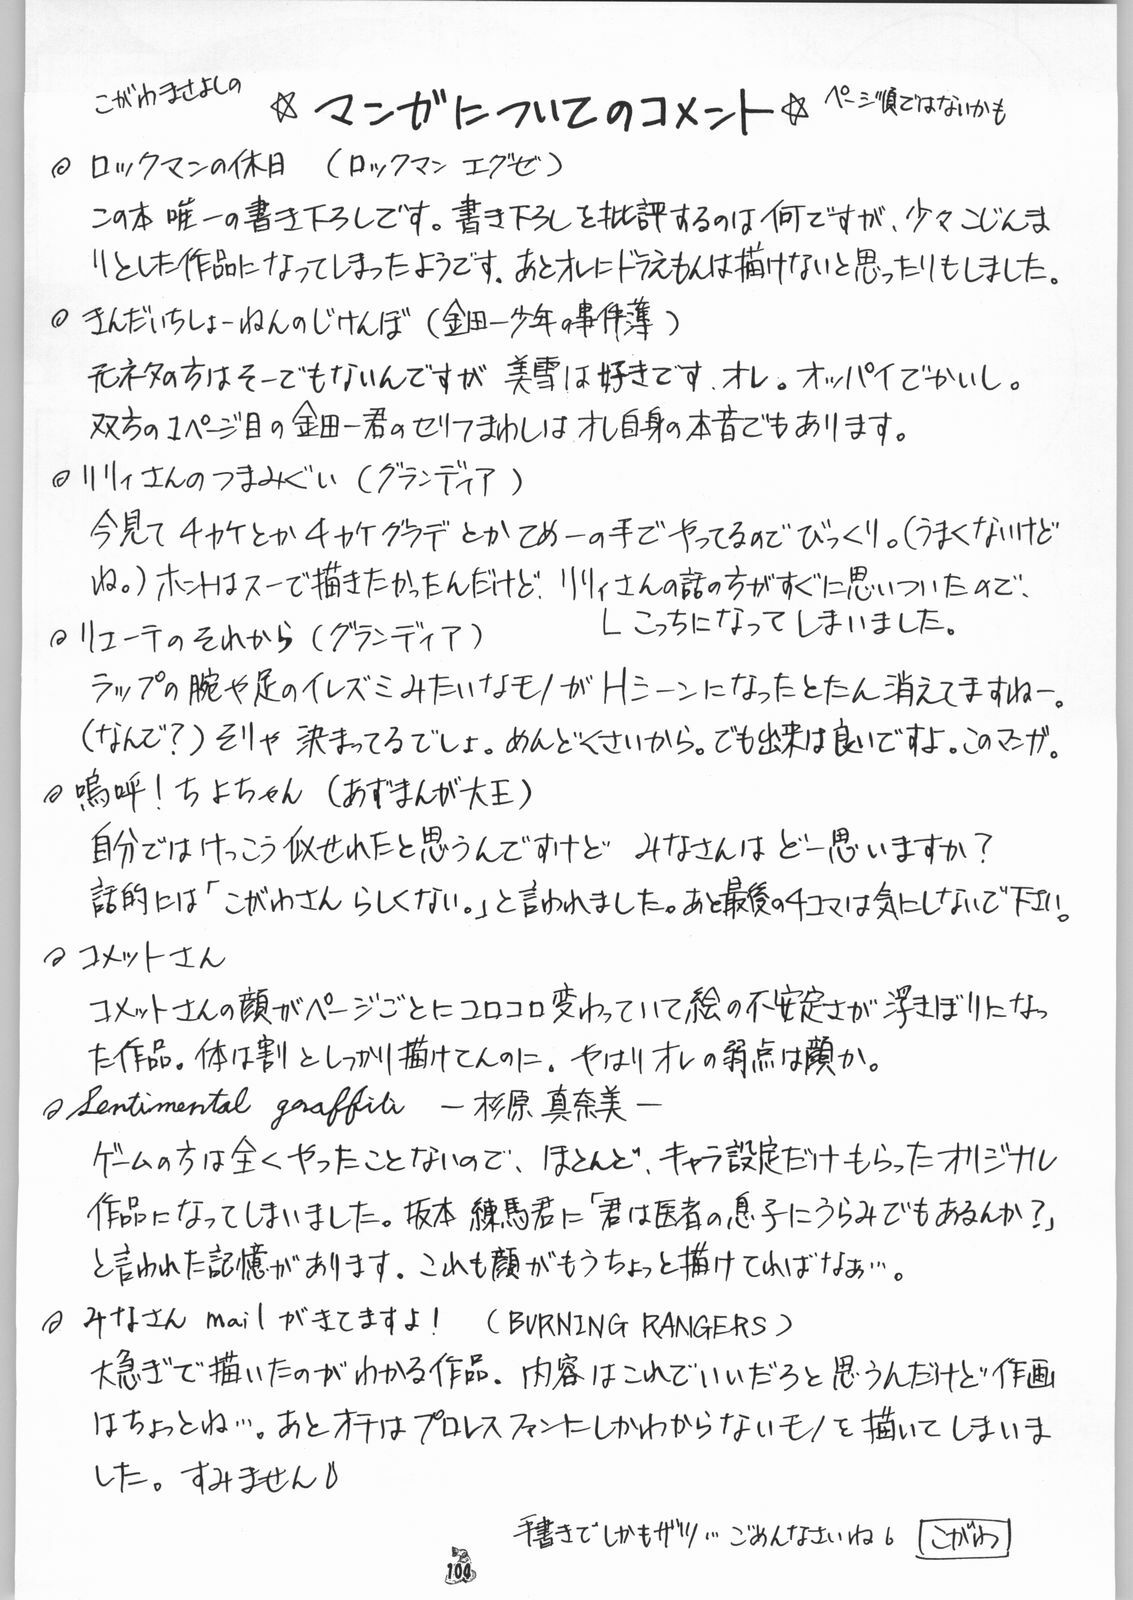 こがわまさよしの ☆ マンガについてのコメント☆ ページ順ではないかも
ロックマンの休日 (ロックマン エグゼ)
この本 唯一の書き下ろしです。書き下ろしを批評するのは何ですが、少々こじんま
りとした作品になってしまったようです。あとオレにドラえもんは描けないと思ったりもしました。
きんだいちしょーねんのじけんぼ (金田一少年の事件簿)
元ネタの方はそーでもないんですが 美雪は好きです、オレ。オッパイでかいし。
双方の1ページ目の金田一君のセリフまわしは オレ自身の本音でもあります。
リリィさんのつまみぐい (グランディア)
今見て チャケとかチャケグラデ とか てめーの手でやってるのでびっくり。(うまくないけど
ね。)ホントはスーで描きたかったんだけど、リリィさんの話の方がすぐに思いついたので、
└こっちになってしまいました。
リエーテのそれから (グランディア)
ラップの腕や足のイレズミみたいなモノがHシーンになったとたん消えてますねー。
(なんで?)そりゃ 決まってるでしょ。めんどくさいから。でも出来は良いですよ。このマンガ。
嗚呼!ちよちゃん (あずまんが大王)
自分ではけっこう似せれたと思うんですけど みなさんは どー思いますか?
話的には「こがわさん らしくない。」と言われました。あと最後の4コマは気にしないで下さい。
コメットさん
コメットさんの顔がページごとにコロコロ変わっていて絵の不安定さが浮きぼりになっ
た作品。体は割としっかり描けてんのに。やはりオレの弱点は顔か。
Sentimental graffiti ー杉原 真奈美ー
ゲームの方は全くやったことないので、ほとんど、キャラ設定だけもらったオリジナル
作品になってしまいました。坂本 練馬君に「君は医者の息子にうらみでもあるんか?」
と言われた記憶があります。これも顔がもうちょっと描けてればなぁ…。
みなさん mail がきてますよ! (BURNING RANGERS)
大急ぎで描いたのがわかる作品。内容はこれでいいだろと思うんだけど 作画
はちょっとね…。あとオチはプロレスファンにしかわからないモノを描いてしまいま
した。すみません
手書きでしかもザツ… ごめんなさいね。 こがわ
104